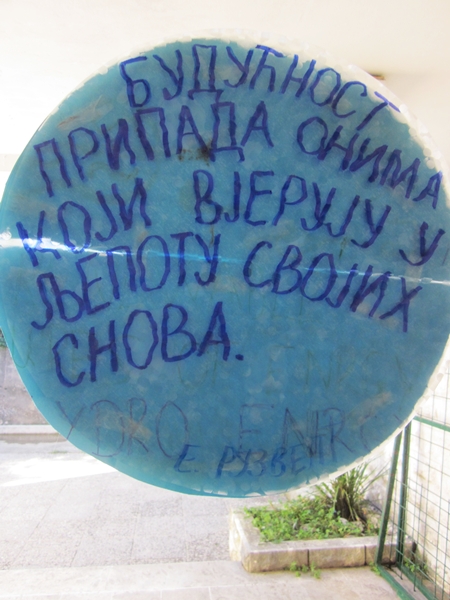 БУДУЋНОСТ
ПРИПАДА ОНИМА
КОЈИ ВЈЕРУЈУ У
ЉЕПОТУ СВОЈИХ
СНОВА.
Е. РУЗВЕЛТ